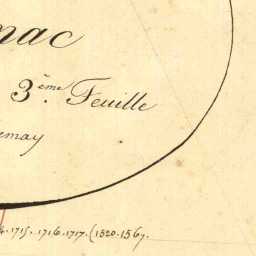 nac
3.ème Feuille
emay
1715. 1716. 1717. (1520. 1567.